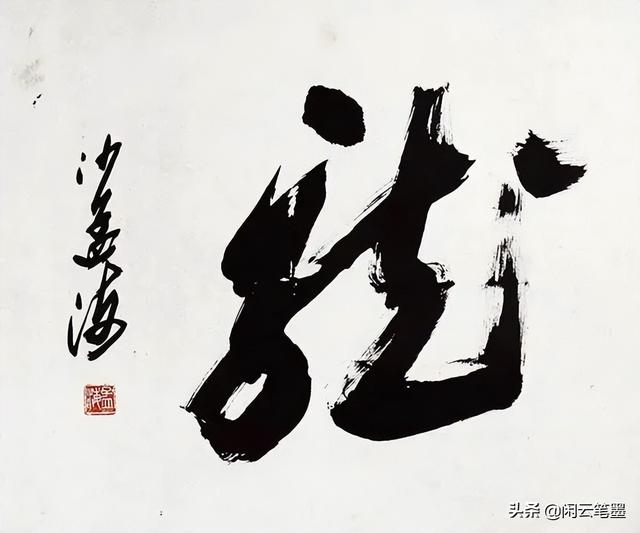 龍
沙孟海
头条 @闲云笔墨